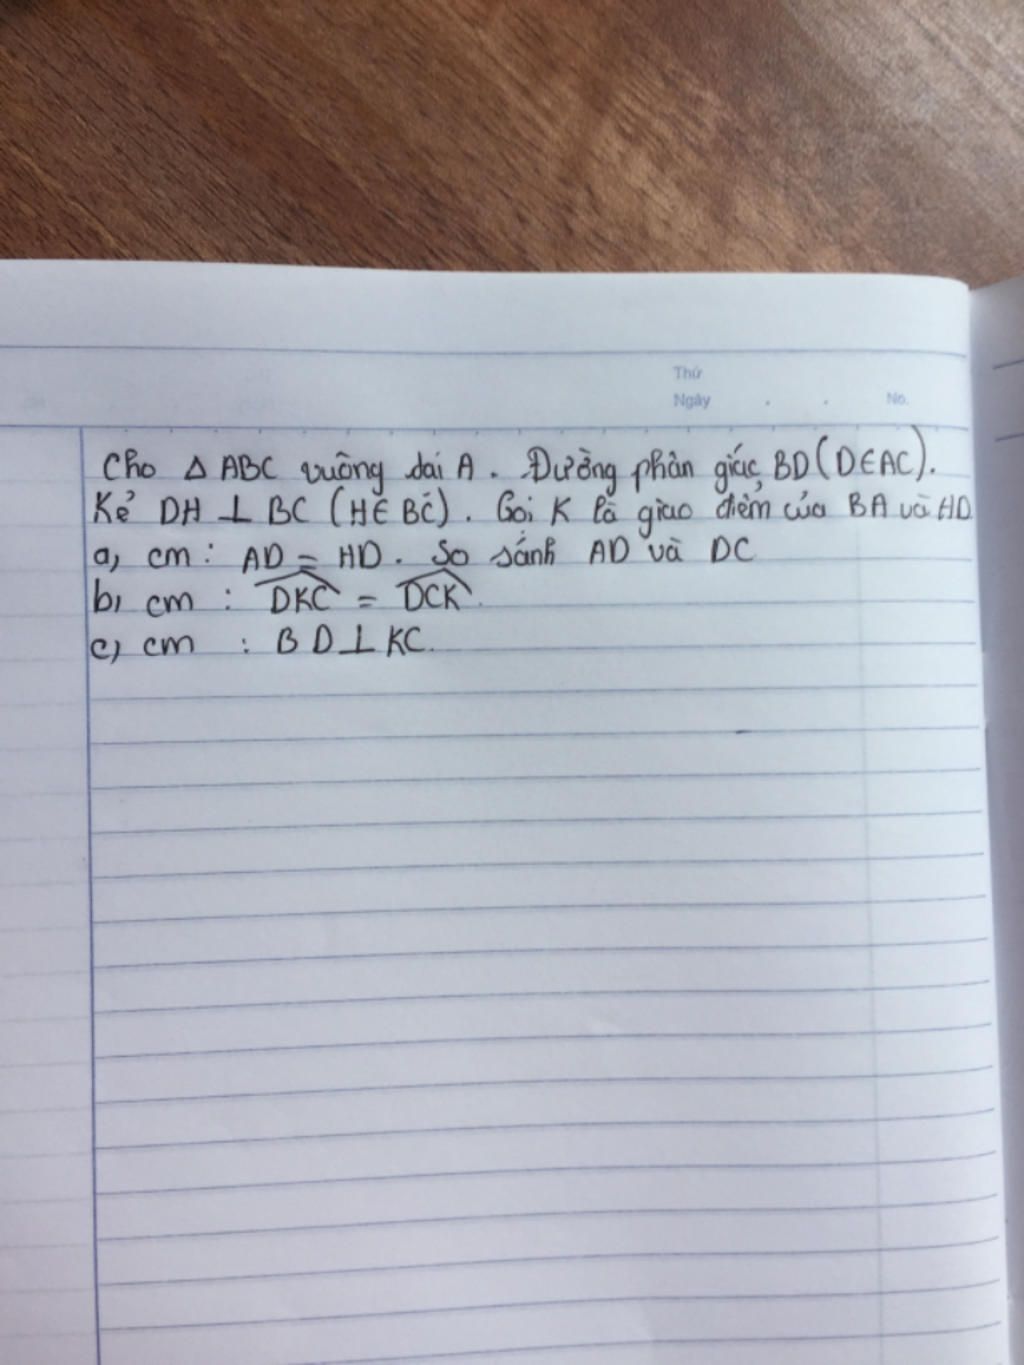 Thứ
Ngày . . No.
Cho Δ ABC vuông tại A. Đường phân giác BD (D∈AC).
Kẻ DH ⊥ BC (H∈BC). Gọi K là giao điểm của BA và HD
a, cm: AD = HD. So sánh AD và DC
b, cm : \widehat{DKC} = \widehat{DCK}.
c, cm : BD⊥KC.